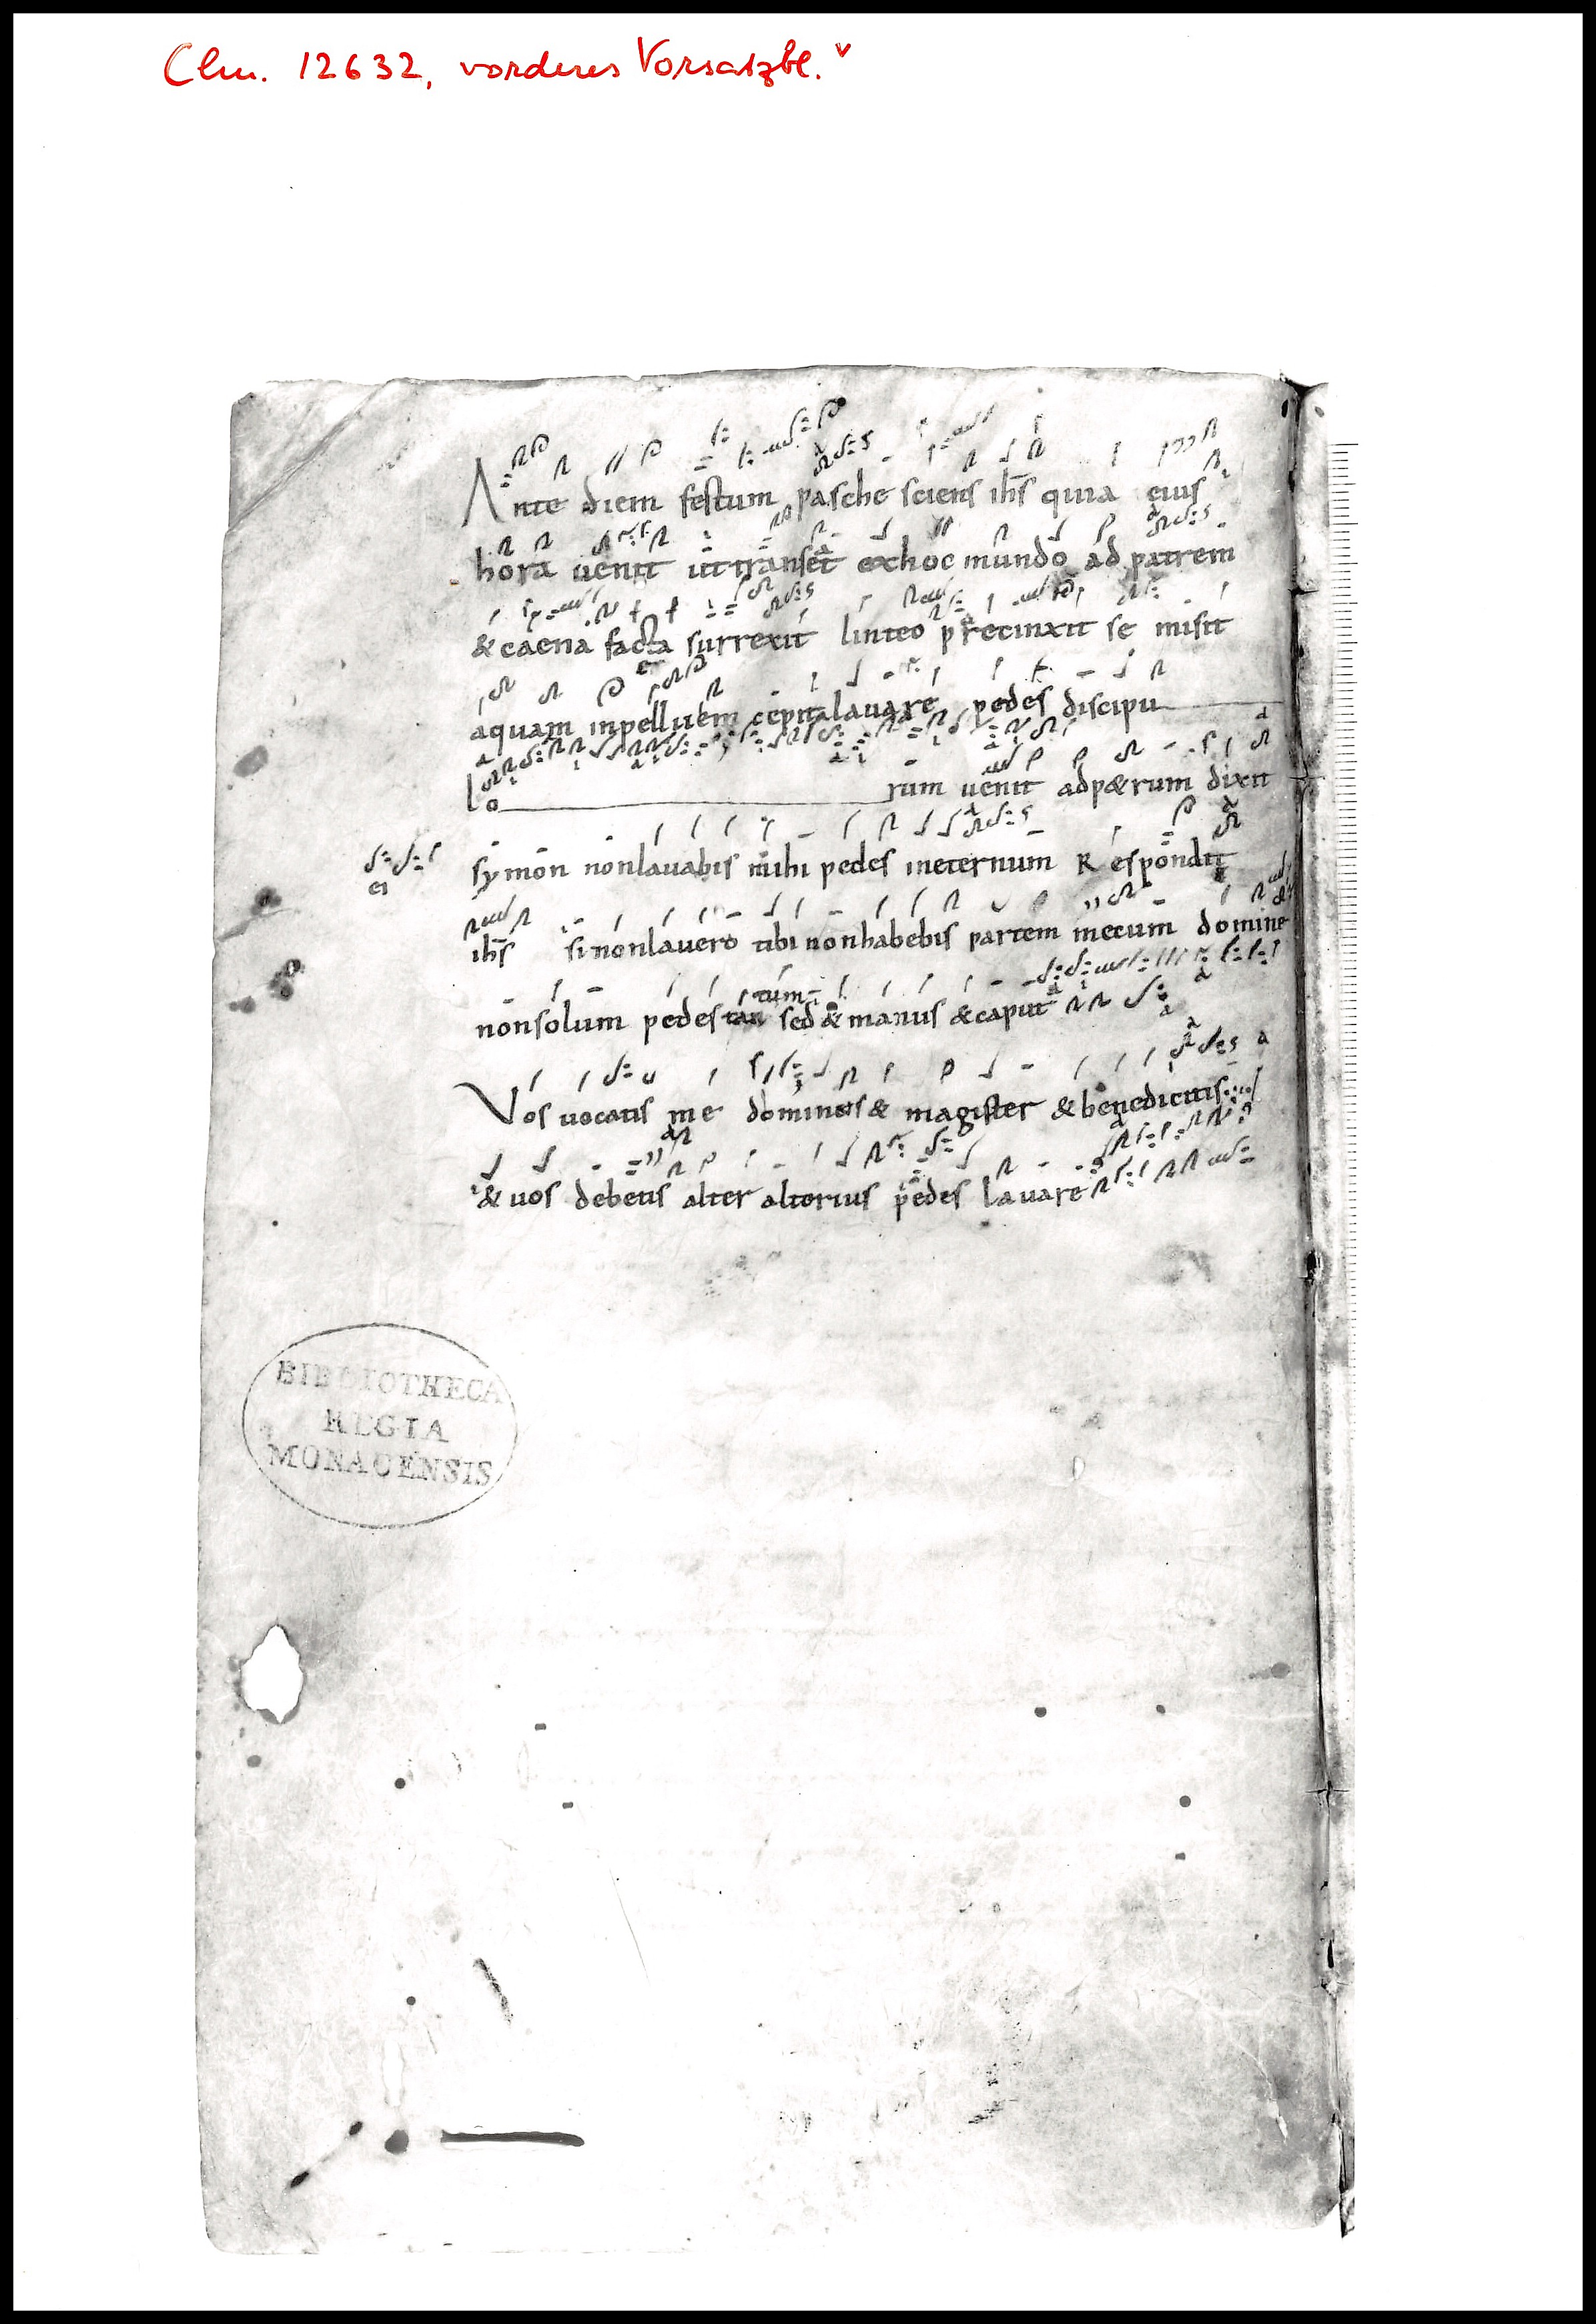 Clm. 12632, vorderes Vorsatzbl. v
Ante diem festum pasche sciens ihs̄ quia eius
hora uenit ut transeret exhoc mundo ad patrem
& caena facta surrexit linteo precinxit se misit
aquam inpelluem cepit lauare pedes discipu
lo rum uenit adp&rum dixit
ei symon nonlauabis mihi pedes ineternum Respondit
ihs̄ si nonlauero tibi nonhabebis partem mecum domine
nonsolum pedes tan tum sed & manus & caput
Vos uocatis me dominus & magister & benedicitis
& uos debetis alter alterius pedes lauare
BIBLIOTHECA
REGIA
MONACENSIS